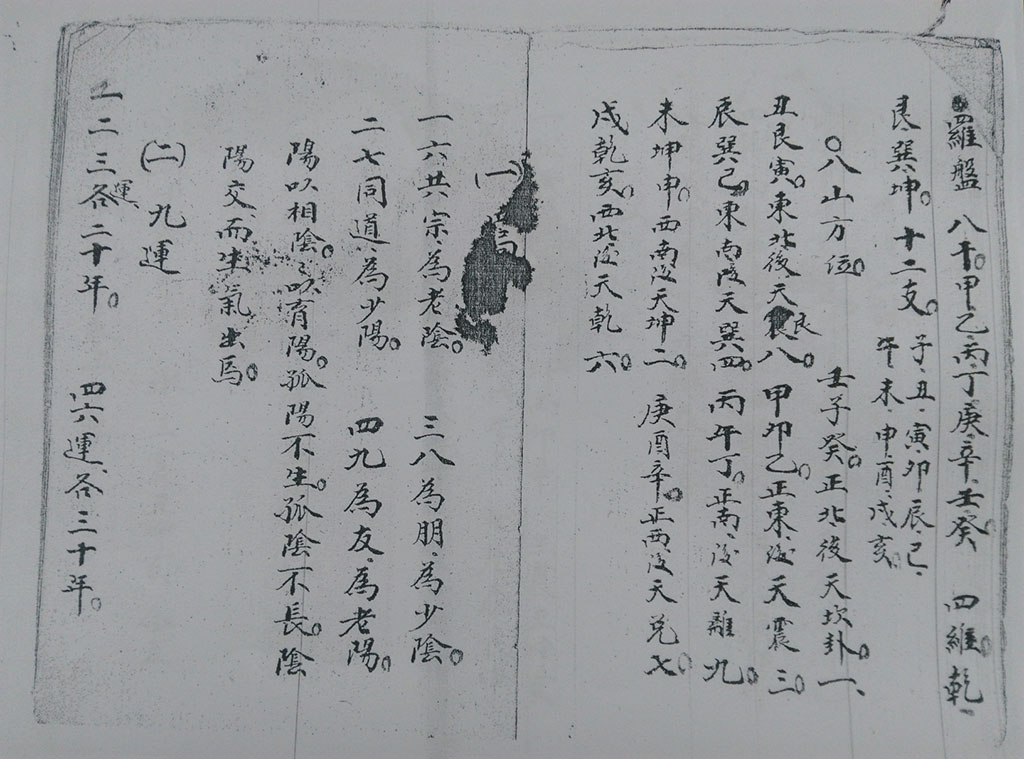 羅盤 八干。甲乙、丙、丁庚、辛、壬癸。 四維。乾、
艮、巽、坤。十二支。子、丑、寅、卯辰、巳、
午、未、申、酉、戌、亥。
〇八山方位。 壬子癸。正北、後天坎卦一、
丑艮寅。東北後天艮八。甲卯乙。正東、後天震三。
辰巽巳。東南後天巽四。丙午丁。正南、後天離九。
未坤申。西南後天坤二。庚酉辛。正西、後天兌七。
戌乾亥。西北後天乾六。
(一)
一六共宗、為老陰。 三八為朋、為少陰。
二七同道、為少陽。 四九為友、為老陽。
陽以相陰。陰以育陽。孤陽不生。孤陰不長。陰
陽交、而生氣出焉。
(二)九運
一二三運、各二十年。 四六運、各三十年。